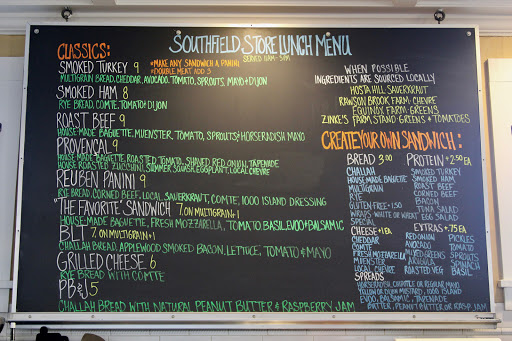 SOUTHFIELD STORE LUNCH MENU
SERVED 11AM - 3PM
CLASSICS:
*MAKE ANY SANDWICH A PANINI
*DOUBLE MEAT ADD 3
SMOKED TURKEY 9
MULTIGRAIN BREAD, CHEDDAR, AVOCADO, TOMATO, SPROUTS, MAYO + DIJON
SMOKED HAM 8
RYE BREAD, COMTE, TOMATO + DIJON
ROAST BEEF 9
HOUSE MADE BAGUETTE, MUENSTER, TOMATO, SPROUTS + HORSERADISH MAYO
PROVENCAL 9
HOUSE MADE BAGUETTE, ROASTED TOMATO, SHAVED RED ONION, TAPENADE
HOUSE ROASTED ZUCCHINI, SUMMER SQUASH, EGGPLANT, LOCAL CHEVRE
REUBEN PANINI 9
RYE BREAD, CORNED BEEF, LOCAL SAUERKRAUT, COMTE, 1000 ISLAND DRESSING
"THE FAVORITE" SANDWICH 7. ON MULTIGRAIN +1
HOUSE MADE BAGUETTE, FRESH MOZZARELLA, TOMATO BASIL EVOO + BALSAMIC
BLT 7. ON MULTIGRAIN +1
CHALLAH BREAD, APPLEWOOD SMOKED BACON, LETTUCE, TOMATO & MAYO
GRILLED CHEESE 6
RYE BREAD WITH COMTE
PB & J 5
CHALLAH BREAD WITH NATURAL PEANUT BUTTER & RASPBERRY JAM
WHEN POSSIBLE
INGREDIENTS ARE SOURCED LOCALLY
HOSTA HILL SAUERKRAUT
RAWSON BROOK FARM: CHEVRE
EQUINOX FARM: GREENS
ZINKE'S FARM STAND: GREENS & TOMATOES
CREATE YOUR OWN SANDWICH:
BREAD 3.00
CHALLAH
HOUSE MADE BAGUETTE
MULTIGRAIN
RYE
GLUTEN-FREE +1.50
WRAPS WHITE OR WHEAT
SPECIAL
PROTEIN + 2.50 EA.
SMOKED TURKEY
SMOKED HAM
ROAST BEEF
CORNED BEEF
BACON
TUNA SALAD
EGG SALAD
CHEESE + 1 EA
CHEDDAR
COMTE
FRESH MOZZARELLA
MUENSTER
LOCAL CHEVRE
EXTRAS + .75 EA
RED ONION PICKLES
AVOCADO TOMATO
MIXED GREENS SPROUTS
ARUGULA SPINACH
ROASTED VEG BASIL
SPREADS
HORSERADISH, CHIPOTLE OR REGULAR MAYO
YELLOW OR DIJON MUSTARD, 1000 ISLAND
EVOO, BALSAMIC, TAPENADE
BUTTER, PEANUT BUTTER OR RASP. JAM